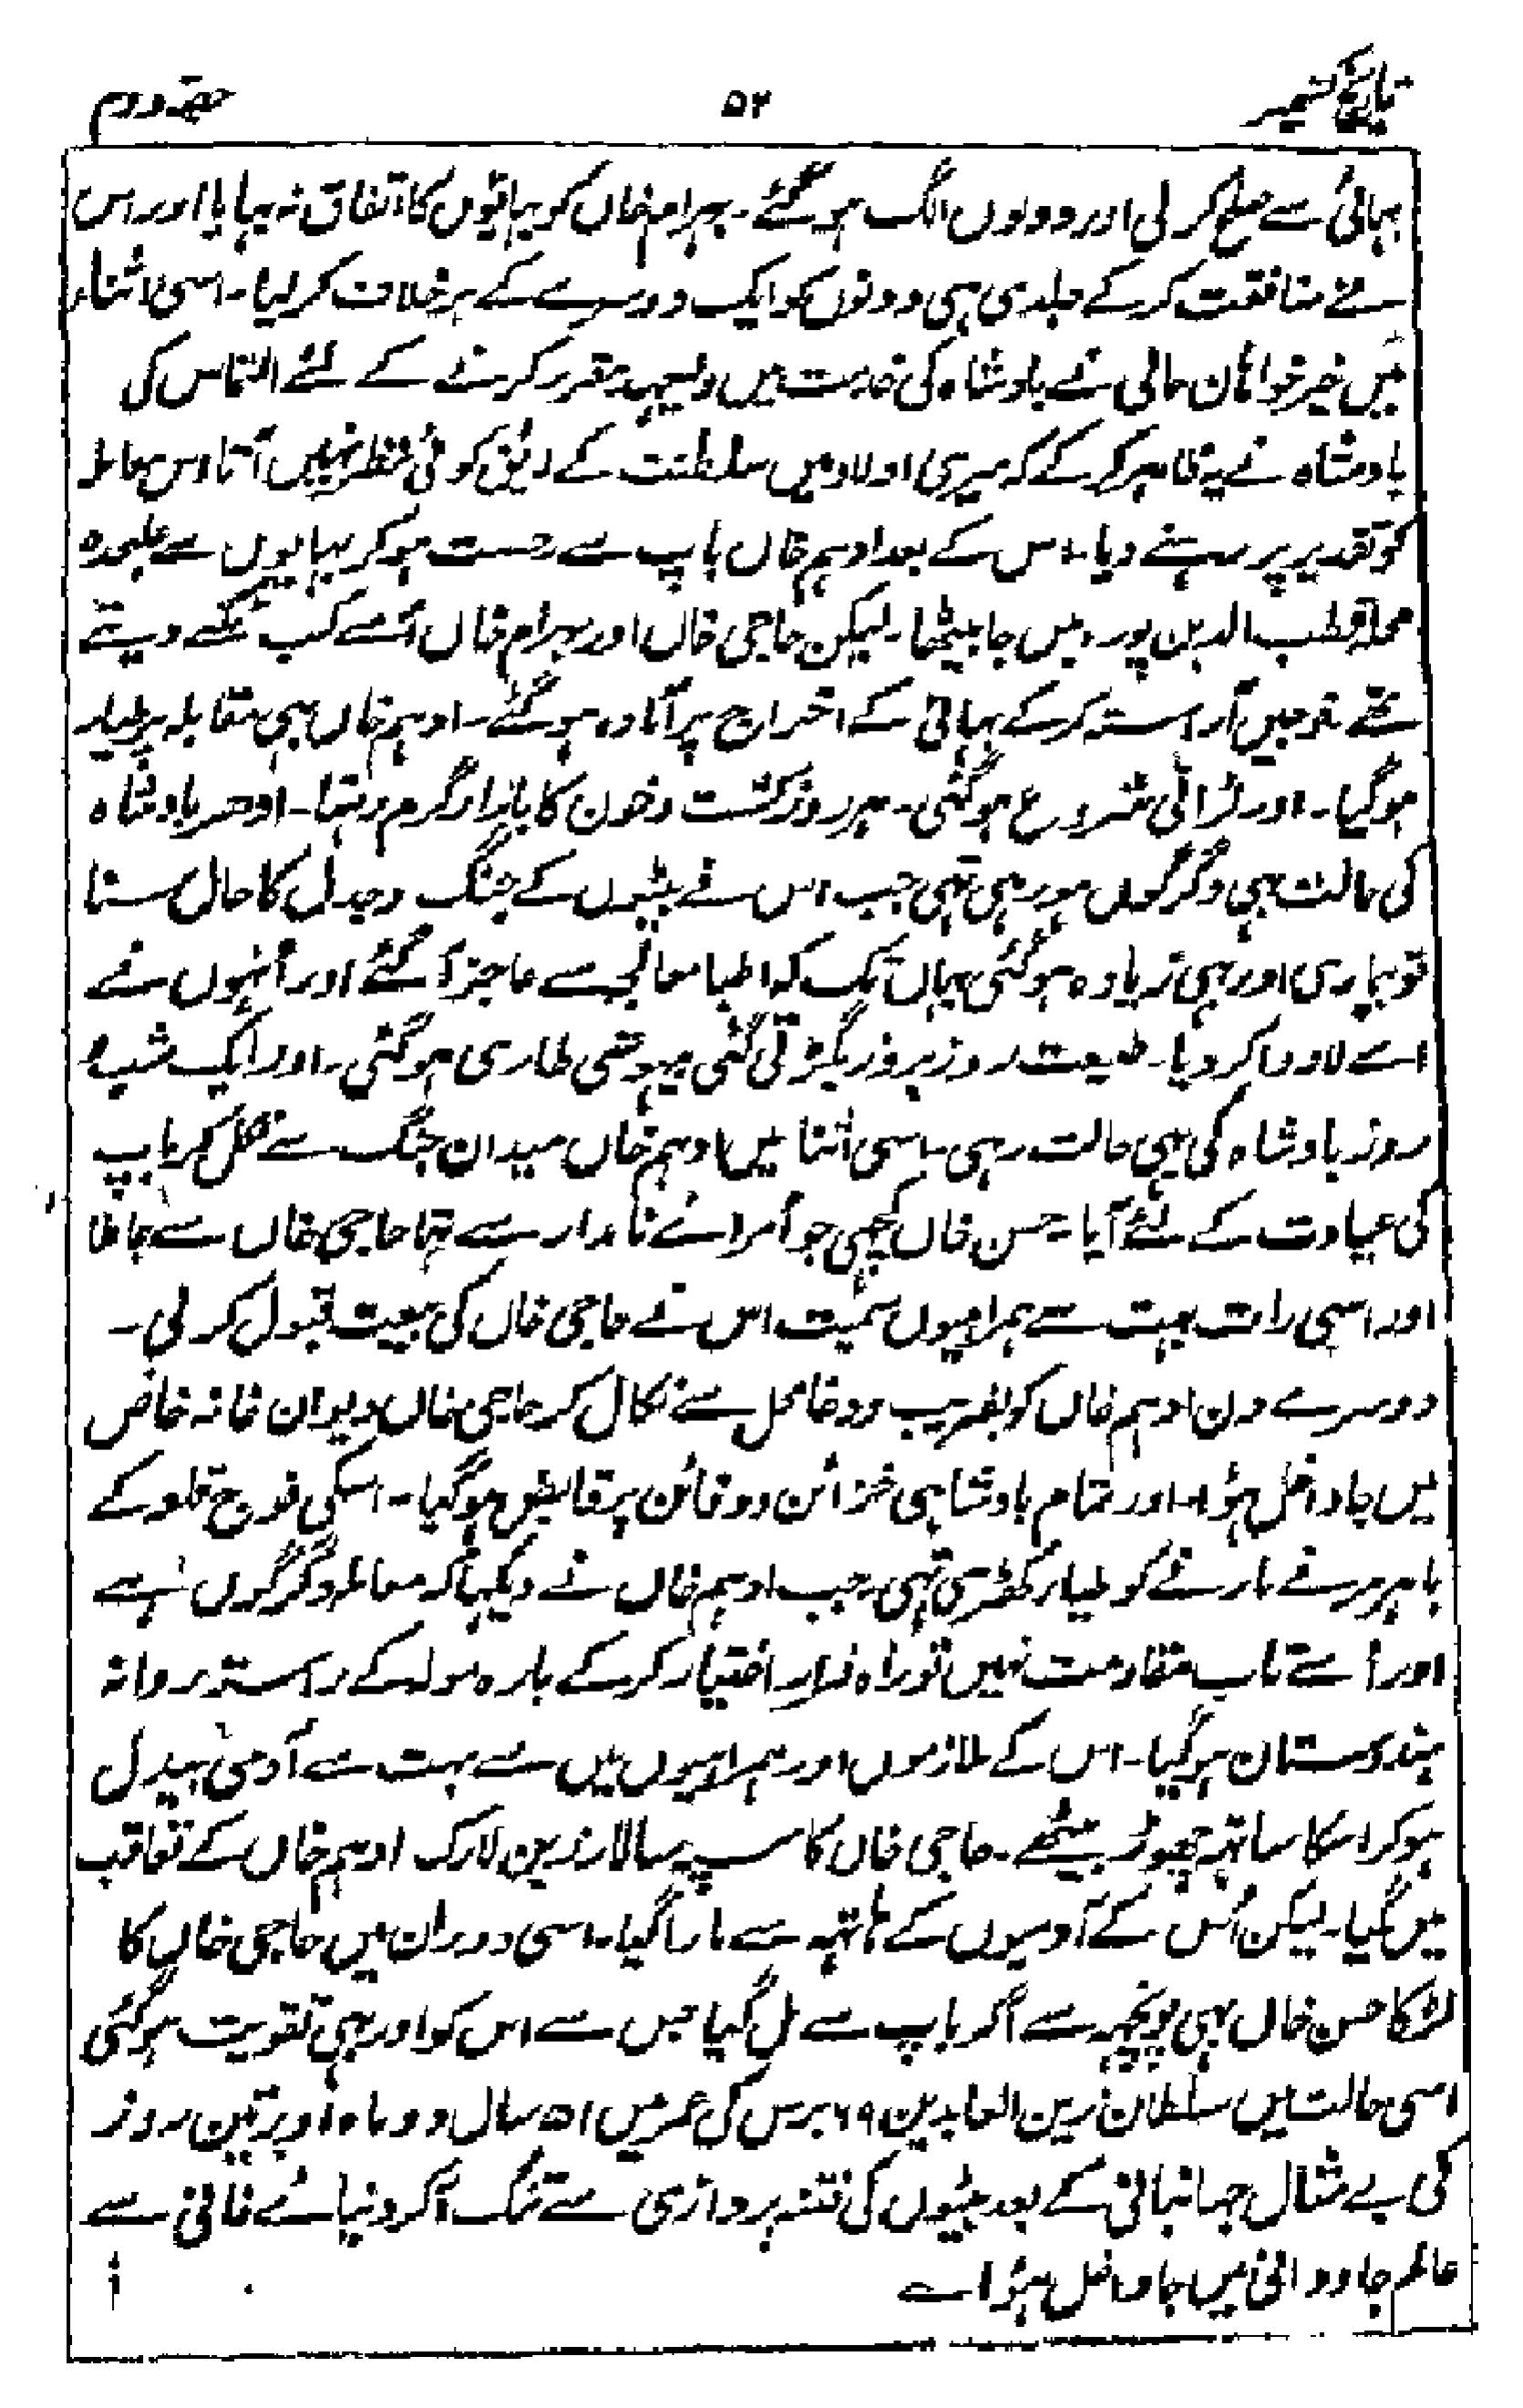 تاریخ کشمیر ۵۲ حصہ دوم
بہائی سے صلح کر لی اور دونوں الگ ہو گئے۔ بہرام خاں کو بہائیوں کا اتفاق نہ بہایا اور اس
نے منافقت کر کے جلدی ہی دونوں کو ایک دوسرے کے برخلاف کر لیا۔ اسی اثناء
میں خیر خواہان حالی نے بادشاہ کی خدمت میں ولیعہد مقرر کرنے کے لئے التماس کی
بادشاہ نے یہ ظاہر کر کے کہ میری اولاد میں سلطنت کے لایق کوئی نظر نہیں آتا اس معاملہ
کو تقدیر پر رہنے دیا۔ اس کے بعد ادہم خاں باپ سے رخصت ہو کر بہایوں سے علیحدہ
محلہ قطب الدین پورہ میں جا بیٹھا۔ لیکن حاجی خاں اور بہرام خاں اُسے کب ٹکنے دیتے
تھے فوجیں آراستہ کر کے بہائی کے اخراج پر آمادہ ہو گئے۔ ادہم خاں بہی مقابلہ پر طیار
ہو گیا۔ اور لڑائی شروع ہو گئی۔ ہر روز کشت و خون کا بازار گرم رہتا۔ ادھر بادشاہ
کی حالت بہی دگرگوں ہو رہی تہی جب اس نے بیٹوں کے جنگ و جدل کا حال سنا
تو بیماری اور بہی زیادہ ہو گئی یہاں تک کہ اطبا معالجہ سے عاجز آ گئے اور اُنہوں نے
اسے لادوا کر دیا۔ طبیعت روز بروز بگڑتی گئی بیہوشی طاری ہو گئی۔ اور ایک شب و
روز بادشاہ کی یہی حالت رہی۔ اسی اثنا میں ادہم خاں میدان جنگ سے نکل کر باپ
کی عیادت کے لئے آیا۔ حسن خاں کچہی جو اُمرائے نامدار سے تہا حاجی خاں سے جا ملا
اور اسی رات بہت سے ہمراہیوں سمیت اس نے حاجی خاں کی بیعت قبول کر لی۔
دوسرے دن ادہم خاں کو بفریب و دغا محل سے نکال کر حاجی خاں دیوان خانہ خاص
میں جا داخل ہؤا۔ اور تمام بادشاہی خزائن و دفائن پر قابض ہو گیا۔ اسکی فوج قلعہ کے
باہر مرنے مارنے کو طیار کھڑی تہی۔ جب ادہم خاں نے دیکہا کہ معاملہ دگرگوں ہے
اور اُسے تاب مقاومت نہیں تو راہ فرار اختیار کر کے بارہ مولہ کے رستہ روانہ
ہندوستان ہو گیا۔ اس کے ملازموں اور ہمراہیوں میں سے بہت سے آدمی بیدل
ہو کر اسکا ساتہہ چھوڑ بیٹھے۔ حاجی خاں کا سپہ سالار زین لارک ادہم خاں کے تعاقب
میں گیا۔ لیکن اُس کے آدمیوں کے ہاتہہ سے مارا گیا۔ اسی دوران میں حاجی خاں کا
لڑکا حسن خاں بہی پونچہہ سے آکر باپ سے مل گیا جس سے اس کو اور بہی تقویت ہو گئی
اسی حالت میں سلطان زین العابدین ۶۹ برس کی عمر میں ۵۱ سال دو ماہ اور تین روز
کی بے مثال جہانبانی کے بعد بیٹوں کی فتنہ پردازی سے تنگ آکر دنیائے فانی سے
عالم جاودانی میں جا داخل ہؤا ؎